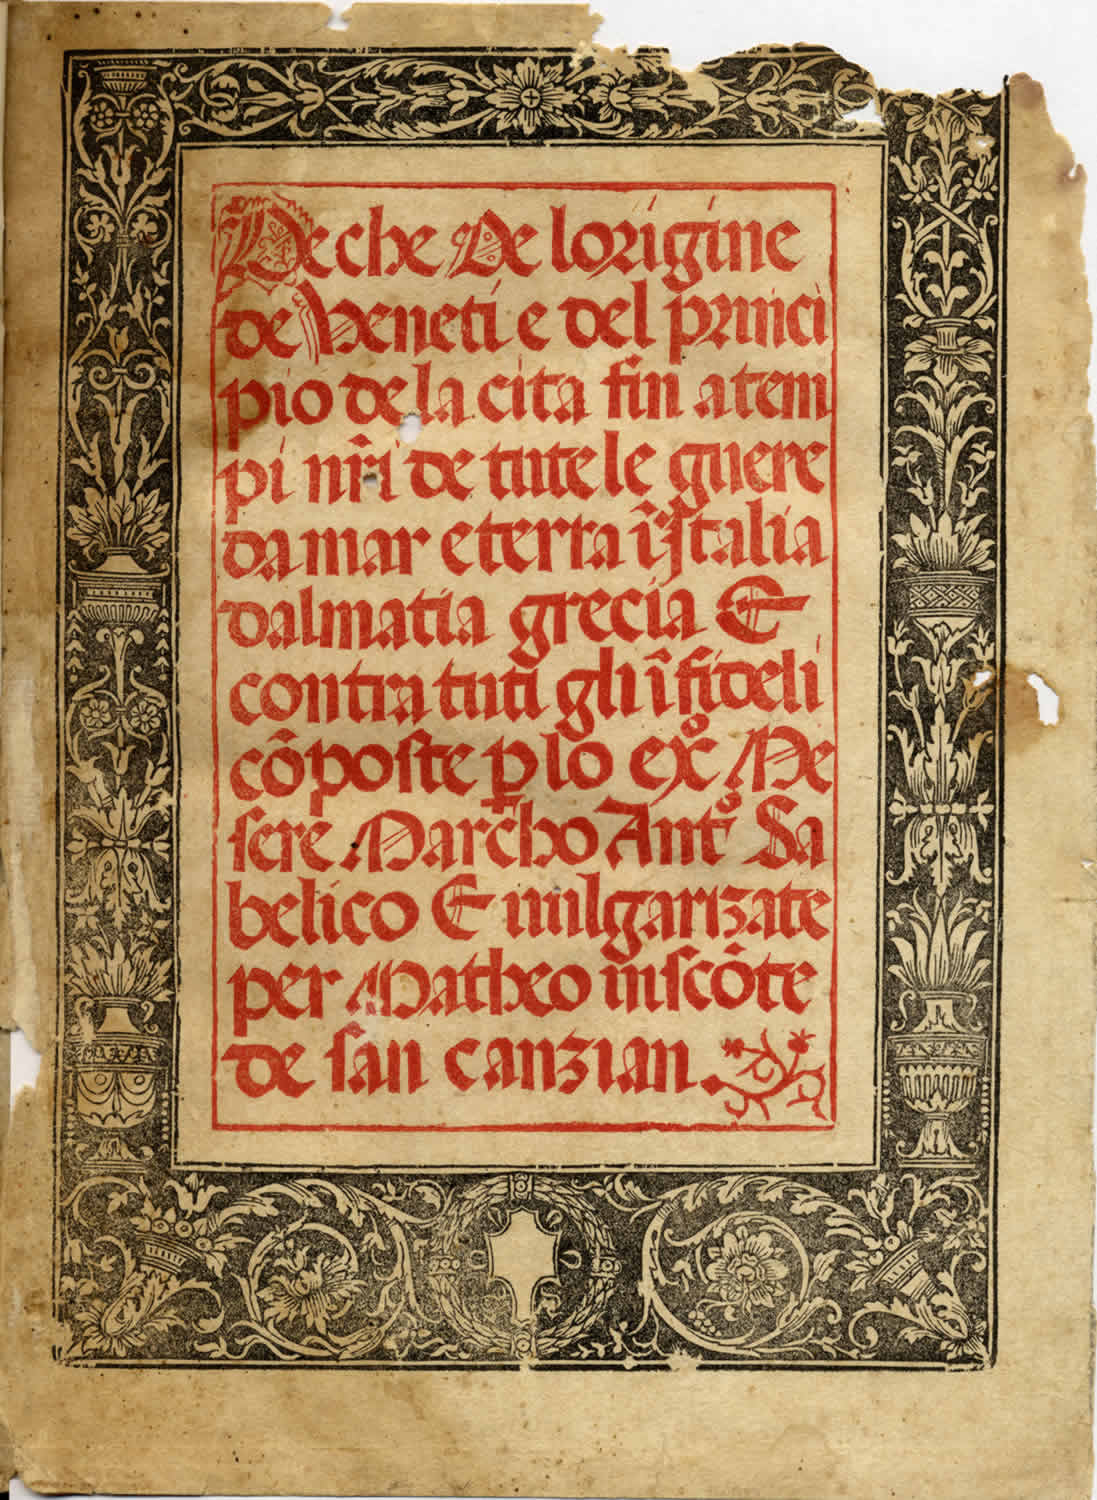 Deche De lorigine
de Veneti e del princi
pio de la cita fin a tem
pi nr̃i de tute le guere
da mar e terra ĩ Italia
dalmatia grecia Et
contra tuti gli ĩfideli
cõposte ꝑ lo exº Me
sere Marcho Antº Sa
belico Et uulgarizate
per Matheo uiscõte
de san canzian.